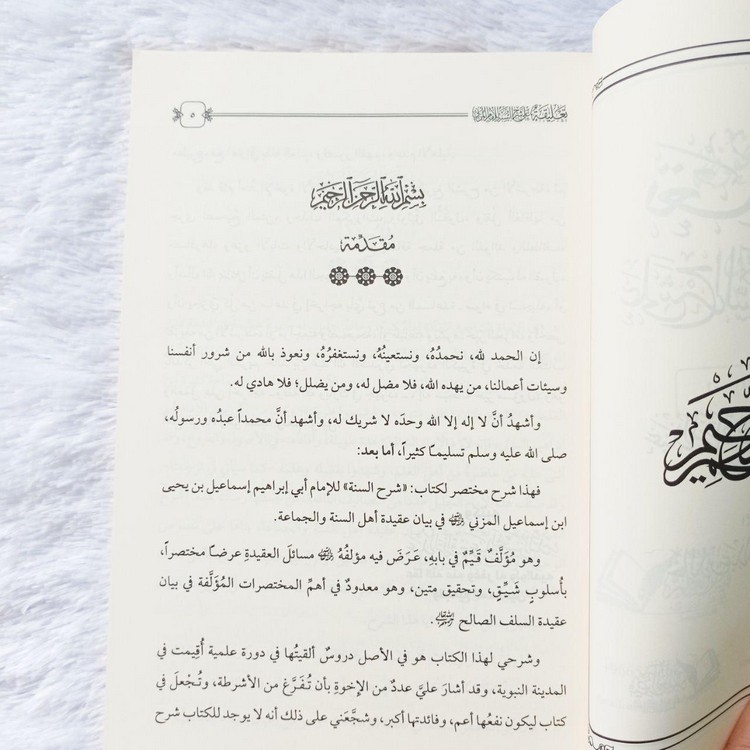 تعليقة على شرح السنة للإمام المزني
٥
بسم الله الرحمن الرحيم
مُقدِّمة
إن الحمد لله، نحمدُهُ، ونستعينُهُ، ونستغفرُهُ، ونعوذ بالله من شرور أنفسنا
وسيئات أعمالنا، من يهده الله، فلا مضل له، ومن يضلل؛ فلا هادي له.
وأشهدُ أنَّ لا إله إلا الله وحدَه لا شريك له، وأشهد أنَّ محمداً عبدُه ورسولُه،
صلى الله عليه وسلم تسليمـًا كثيراً، أما بعد:
فهذا شرح مختصر لكتاب: «شرح السنة» للإمام أبي إبراهيم إسماعيل بن يحيى
ابن إسماعيل المزني رحمه الله في بيان عقيدة أهل السنة والجماعة.
وهو مُؤَلَّفٌ قَيِّمٌ في بابهِ، عَرَضَ فيه مؤلفُهُ رحمه الله مسائلَ العقيدةِ عرضـًا مختصراً،
بأُسلوبٍ شَيِّقٍ، وتحقيق متين، وهو معدودٌ في أهمِّ المختصرات المُؤلَّفة في بيان
عقيدة السلف الصالح رحمهم الله تعالى.
وشرحي لهذا الكتاب هو في الأصل دروسٌ ألقيتُها في دورة علمية أُقِيمت في
المدينة النبوية، وقد أشارَ عليَّ عددٌ من الإخوةِ بأن تُفَرَّغ من الأشرطة، وتُجْعلَ في
كتاب ليكون نفعُها أعم، وفائدتها أكبر، وشجَّعَني على ذلك أنه لا يوجد للكتاب شرح